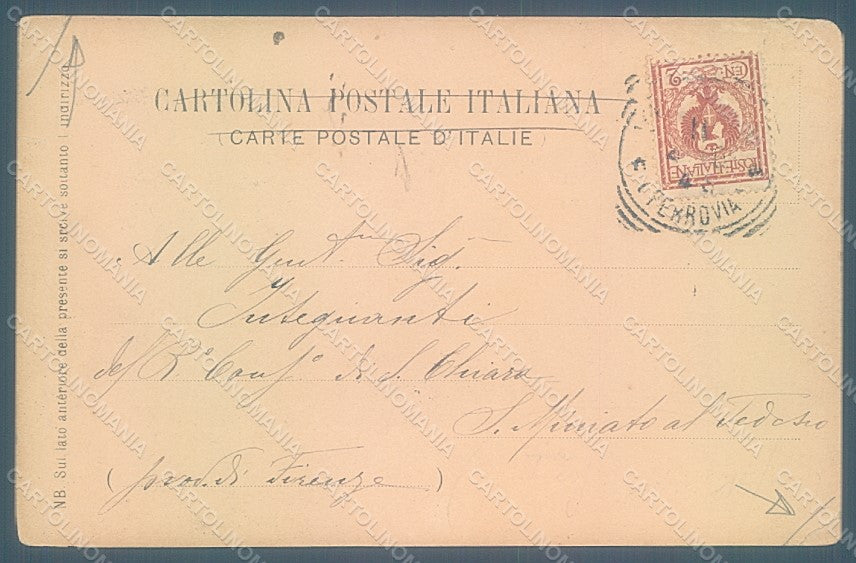 CARTOLINA POSTALE ITALIANA
(CARTE POSTALE D'ITALIE)
CEN. 2
POSTE·ITALIANE
FERROVIA
Alle Gent.me Sig.
Insegnanti
del R.o Cons.o di S. Chiara
S. Miniato al Tedesco
(prov. di Firenze)
NB. Sul lato anteriore della presente si scrive soltanto l'indirizzo
CARTOLINOMANIA